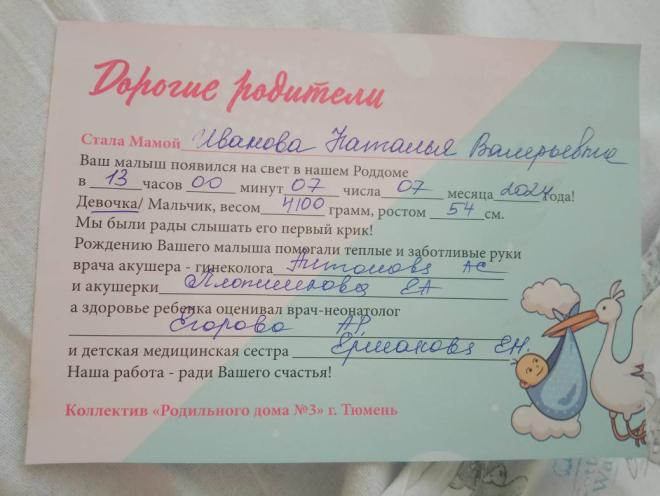 Дорогие родители
Стала Мамой Иванова Наталья Валерьевна
Ваш малыш появился на свет в нашем Роддоме
в 13 часов 00 минут 07 числа 07 месяца 2024 года!
Девочка/ Мальчик, весом 4100 грамм, ростом 54 см.
Мы были рады слышать его первый крик!
Рождению Вашего малыша помогали теплые и заботливые руки
врача акушера - гинеколога Антонова АС
и акушерки Плотникова ЕА
а здоровье ребенка оценивал врач-неонатолог
Егорова А.Р.
и детская медицинская сестра Ермакова Е.Н.
Наша работа - ради Вашего счастья!
Коллектив «Родильного дома №3» г. Тюмень